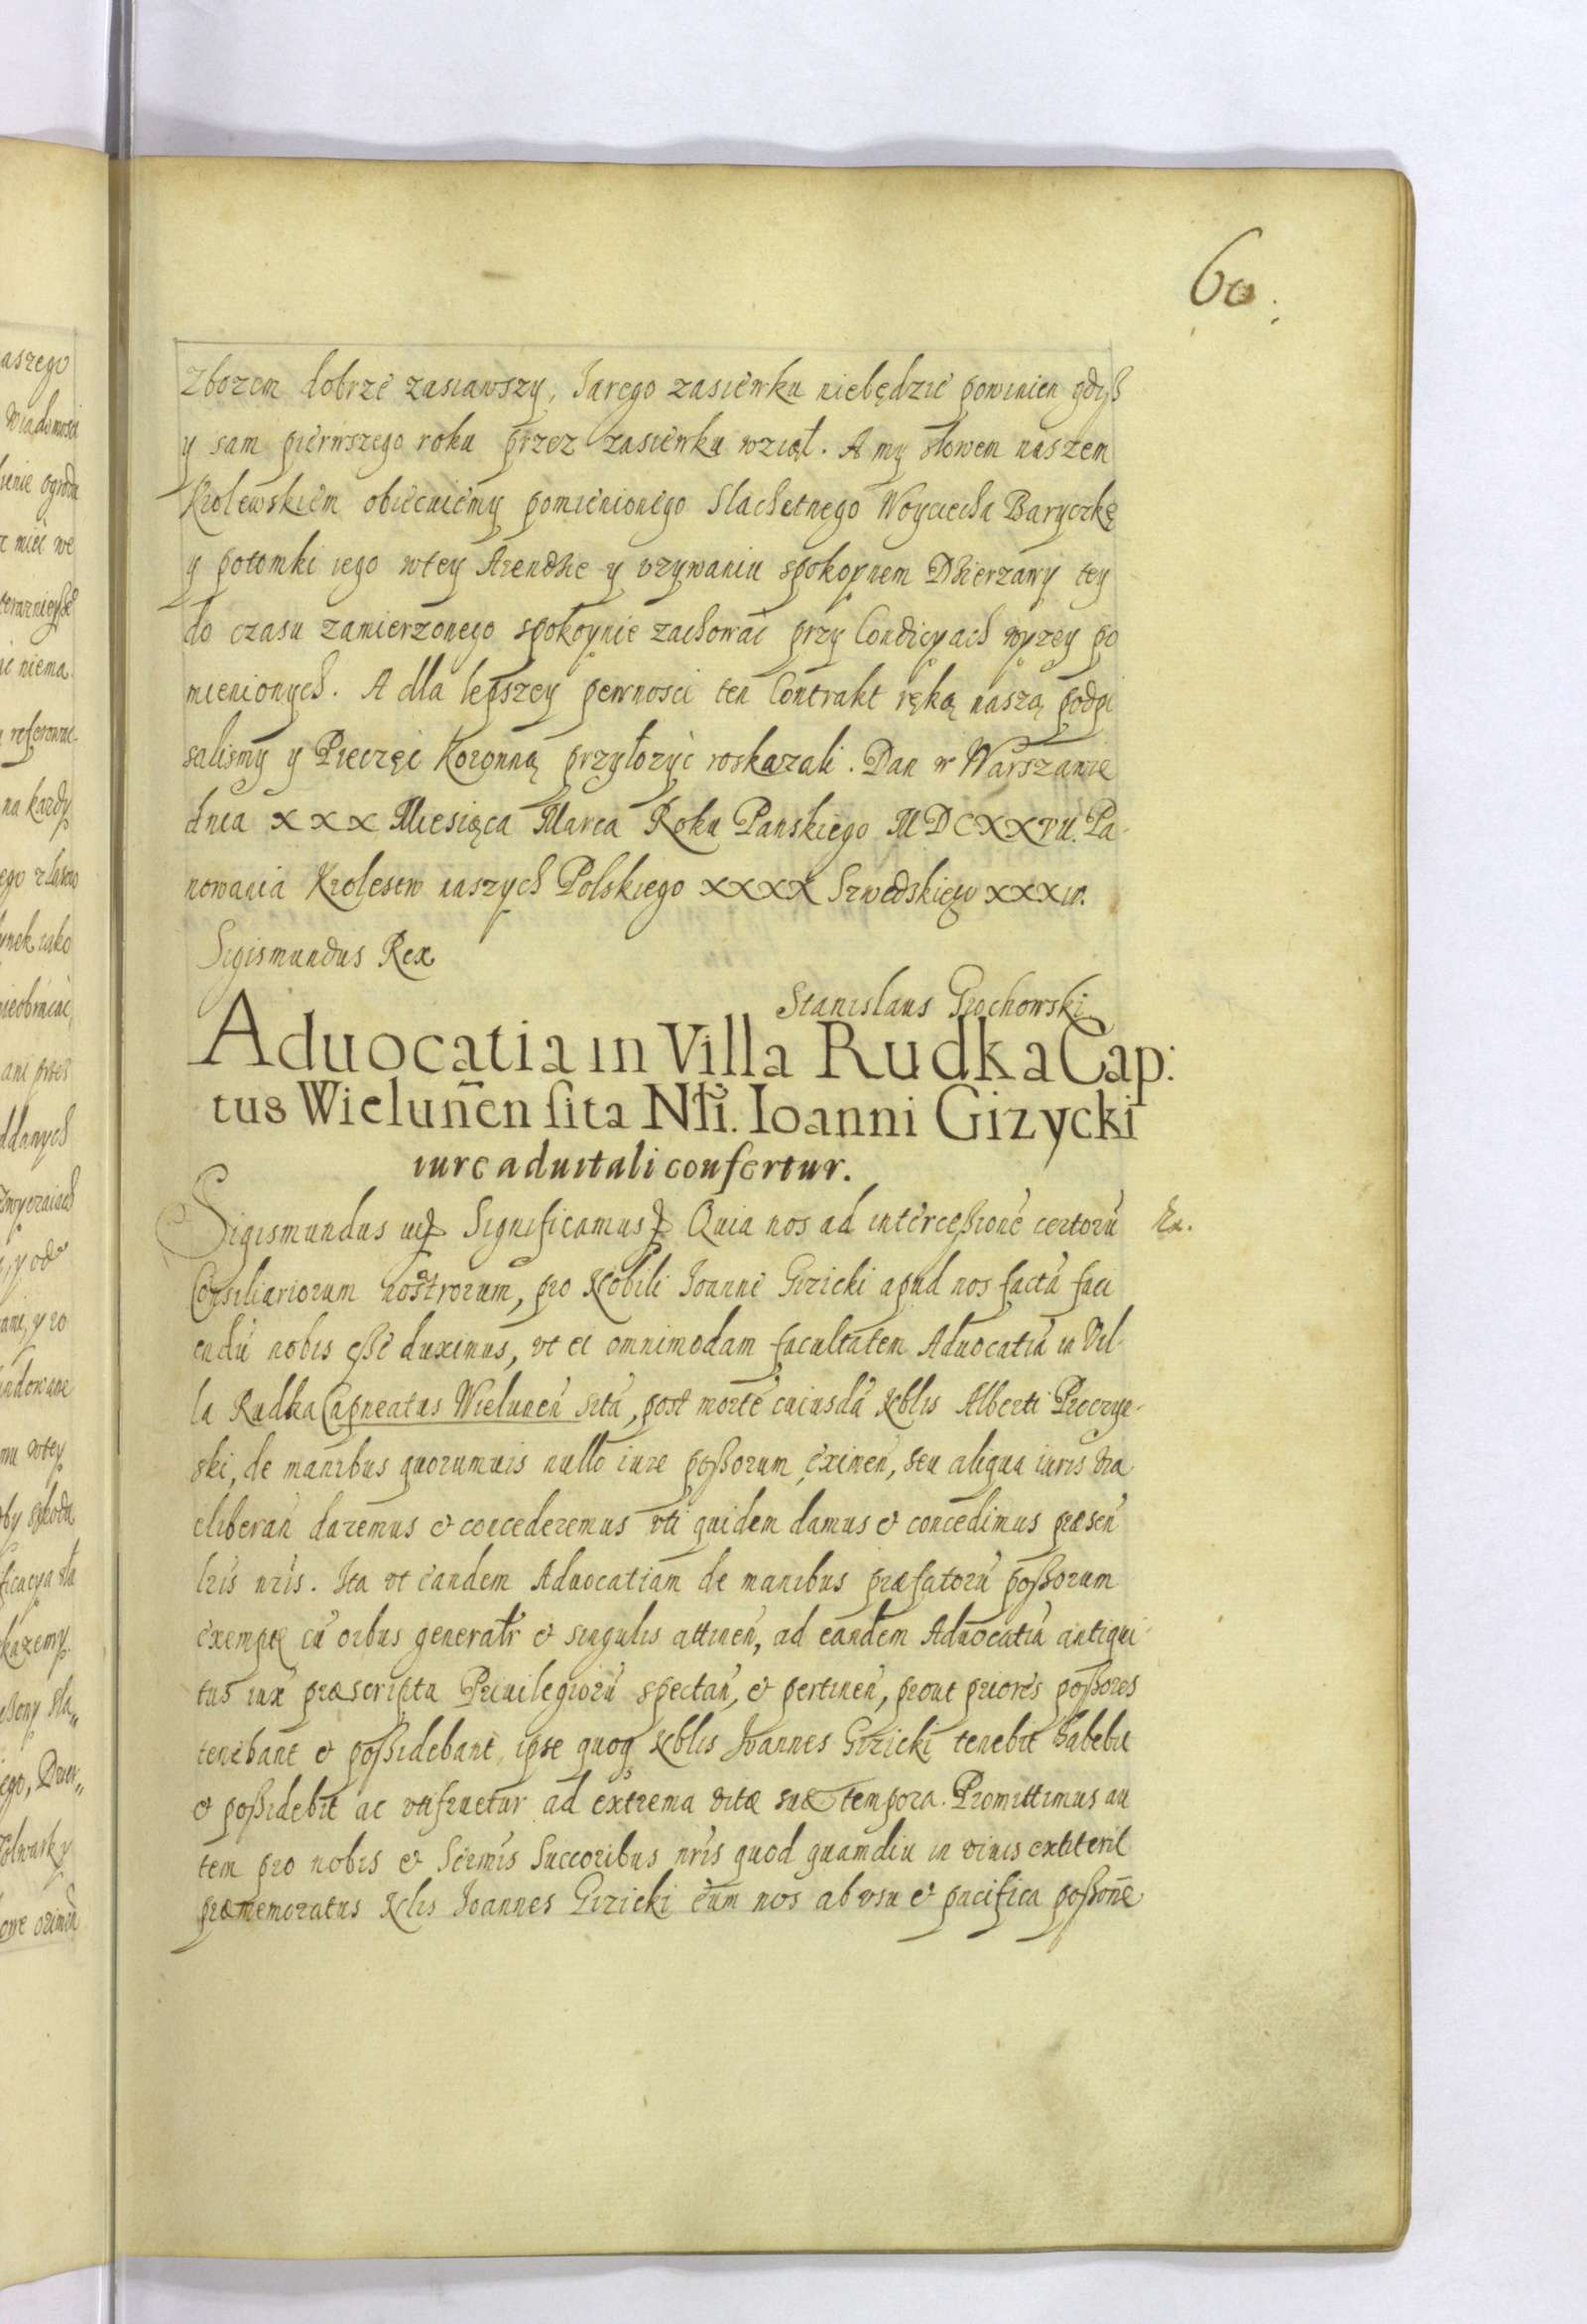 60.
zbozem dobrze zasiawszy, Jarego zasiewku niebędzie powinien gdysz
y sam pierwszego roku przez zasiewku wziął. A my słowem naszem
Krolewskiem obiecuiemy pomienionego Slachetnego Woyciecha Baryczkę
y potomki iego wtey Arendzie y vzywaniu spokoynem Dzierzawy tey
do czasu zamierzonego spokoynie zachować przy Condicyach wyzey po
mienionych. A dla lepszey pewnosci ten Contrakt ręką naszą podpi
salismy y Pieczęć Koronną przyłozyć roskazali. Dan w Warszawie
dnia XXX Miesiąca Marca Roku Panskiego MDCXXVII. Pa-
nowania Krolestw naszych Polskiego XXXX Szwedskiego XXXIV.
Sigismundus Rex
Stanislaus Grochowski
Aduocatia in Villa Rudka Cap:
tus Wielunen̄ sita Nłi. Ioanni Gizycki
iure aduitali confertur.
Sigismundus Significamus Quia nos ad intercessionē certorū
Ra.
Consiliariorum nostrorum, pro Nobili Ioanni Gizicki apud nos factā faci
endū nobis esse duximus, vt ei omnimodam facultatem Aduocatiā in Vil-
la Rudka Capneatus Wielunen̄ sitā, post mortē cuiusdā Nblis Alberti
ski, de manibus quorumuis nullo iure possorum eximen̄, seu aliqua iuris via
eliberan̄ daremus & concederemus vti quidem damus & concedimus præsen̄
lris nris. Ita vt eandem Aduocatiam de manibus præfatorū possorum
exemptę cū oibus generalr & singulis attinen̄, ad eandem Aduocatiā antiqui-
tus iux præscripta Priuilegiorū spectan̄, & pertinen̄, prout priores possores
tenebant & possidebant, ipse quoq Nblis Joannes Gizicki tenebit habebit
& possidebit ac vtifruetur ad extrema vitæ suæ tempora. Promittimus au
tem pro nobis & Sermis Succoribus nris quod quamdiu in viuis extiterit
præmemoratus Nlis Ioannes Gizicki eum nos ab vsu & pacifica possone